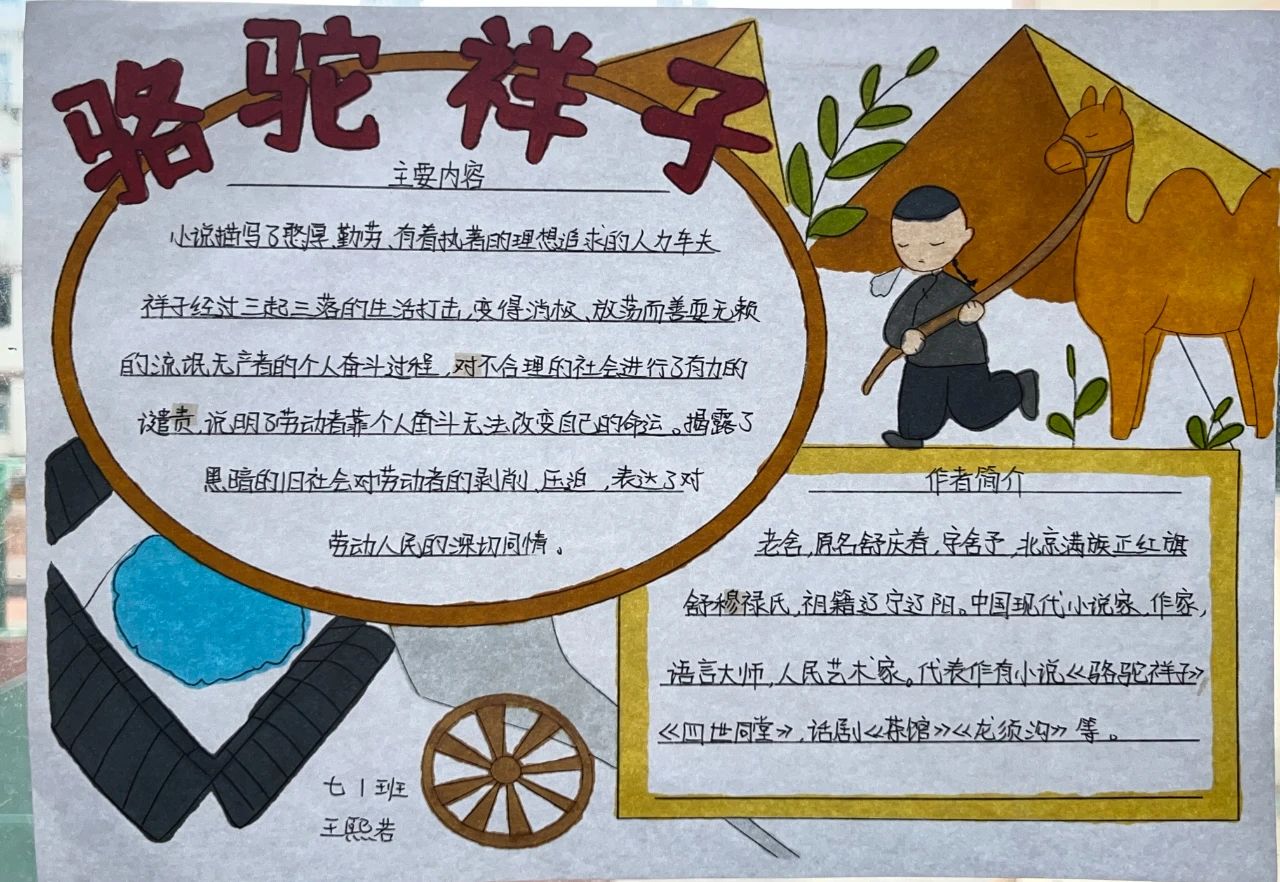 骆驼祥子
主要内容
小说描写了憨厚、勤劳、有着执著的理想追求的人力车夫
祥子经过三起三落的生活打击,变得消极、放荡而善耍无赖
的流氓无产者的个人奋斗过程,对不合理的社会进行了有力的
谴责,说明了劳动者靠个人奋斗无法改变自己的命运。揭露了
黑暗的旧社会对劳动者的剥削、压迫,表达了对
劳动人民的深切同情。
作者简介
老舍,原名舒庆春,字舍予,北京满族正红旗
舒穆禄氏,祖籍辽宁辽阳。中国现代小说家、作家,
语言大师,人民艺术家。代表作有小说《骆驼祥子》
《四世同堂》,话剧《茶馆》《龙须沟》等。
七1班
王熙若